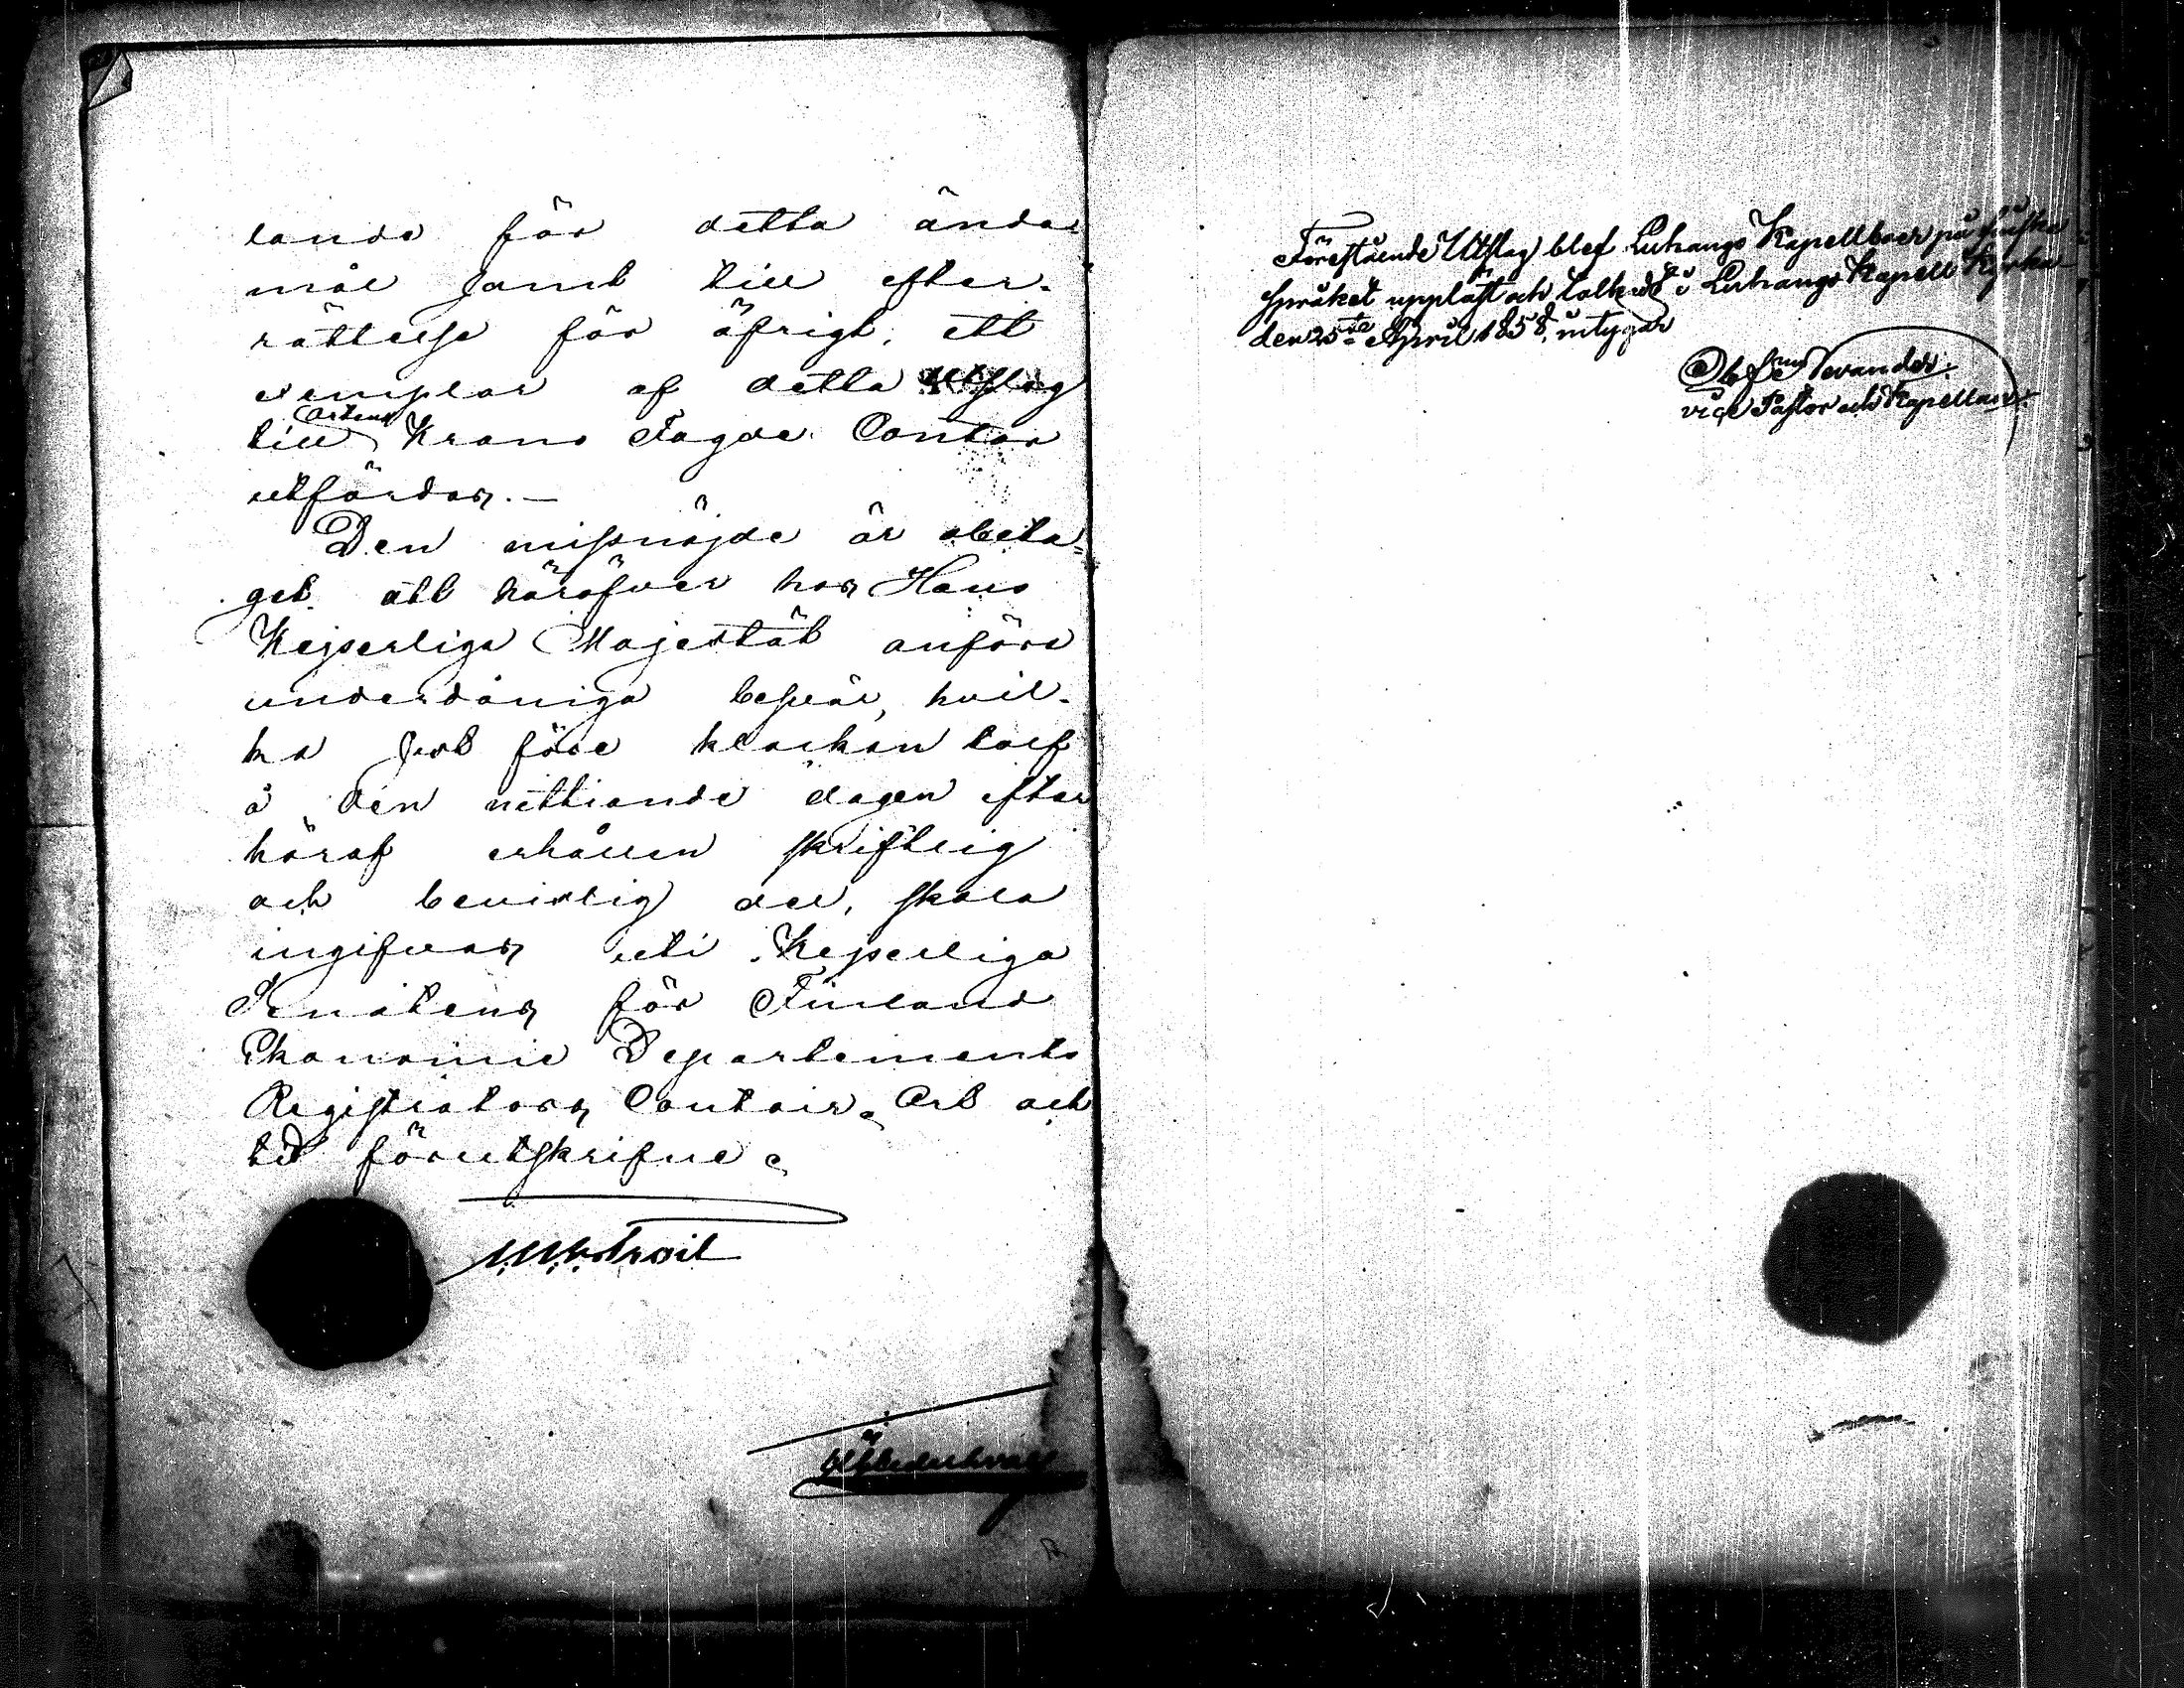 lande för detta ända
mål samt till efter-
rättelse för öfrigt, ett
exemplar af detta Utslag
till ortens Krono Fogde Contor
utfärdas.—
Den missnöjde är obeta-
get att häröfver hos Hans
Kejserliga Majestät anföra
underdåniga besvär, hvil-
ka sist före klockan tolf
å den nittionde dagen efter
häraf erhållen skriftlig
och bevislig del, skola
ingifvas uti Kejserliga
Senatens för Finland
Ekonomie Departements
Registrators Contoir. Ort och
tid förutskrifne.
Förestående Utslag blef Luhango Kapellboer på finska
språket uppläst och tolkadt i Luhango Kapell Kyrka
den 25te April 1858, intygar
vice Pastor och Kapellan.